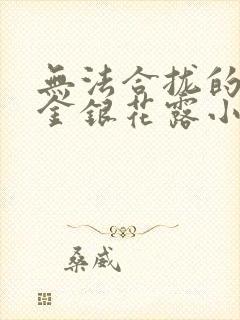 無法合拢的
金銀花露小
桑威